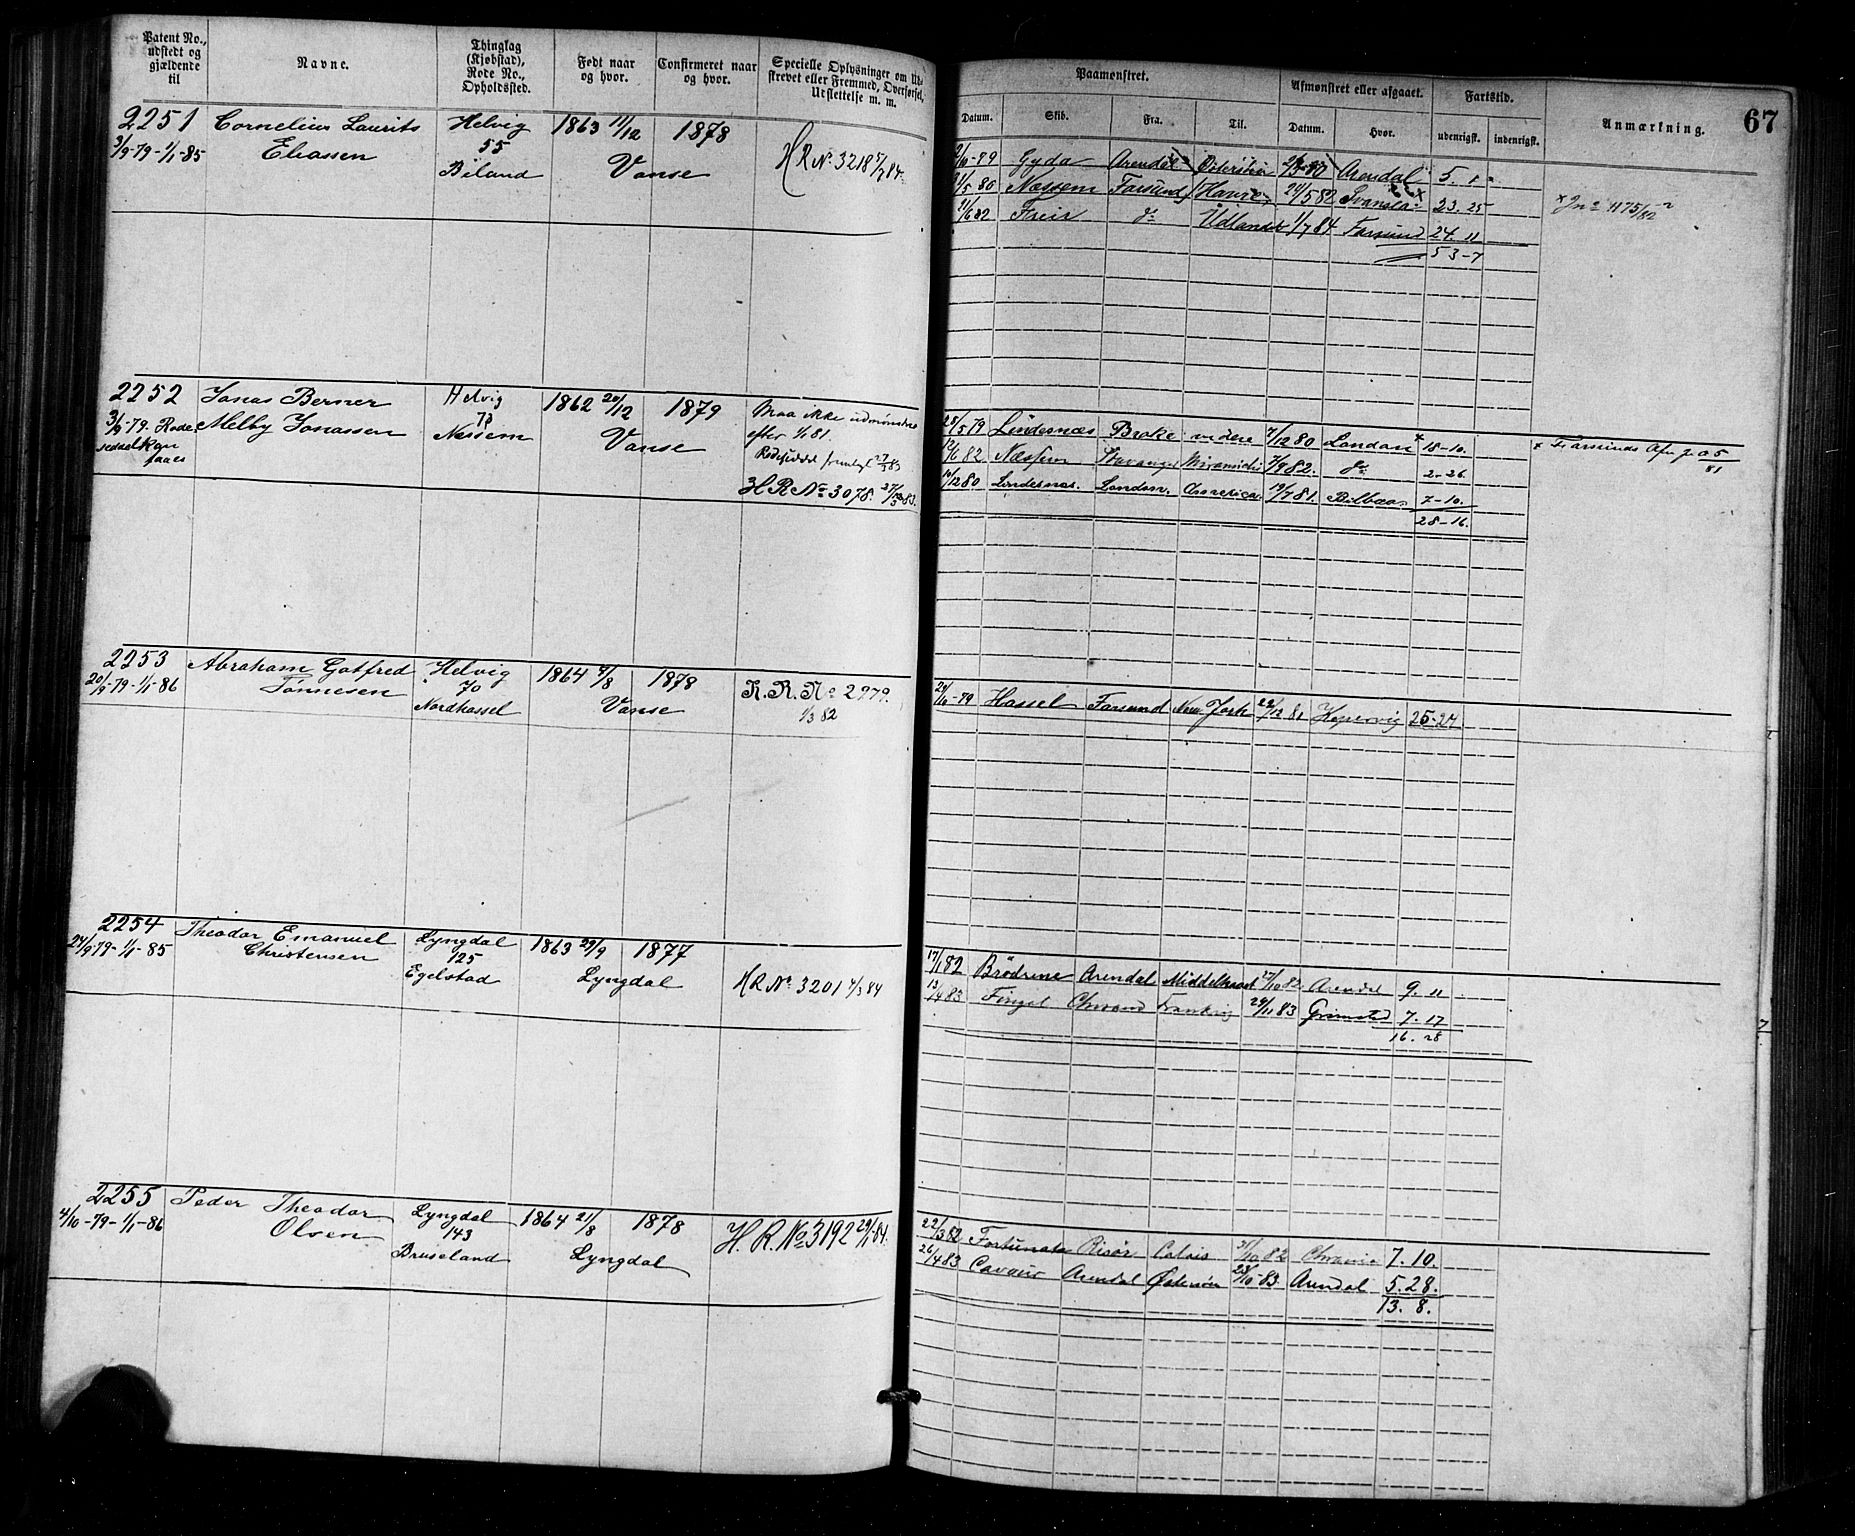 Patent No., udstedt og gjældende til
Navne.
Thinglag (Kjøbstad), Rode No., Opholdssted.
Født naar og hvor.
Confirmeret naar og hvor.
Specielle Oplysninger om Ud-
strevet eller Fremmed, Overførsel,
Udslettelse m. m.
2251 Cornelius Laurits Helvig 1863 11/12 1878
3/9-79-1/1-85 Eliassen 55 Vanse H R No 3218
Biland
2252 Jonas Berner Helvig 1862 20/12 1879 Maa ikke udmønstres
3/9-79. Rode- Melby Jonassen 73 Vanse efter 1/1 81.
seddel kan Næssem Rodeseddel fremlagt 27/3 83
faaes H R No 3078. 27/3 83.
2253 Abraham Gotfred Helvig 1864 9/8 1878 R. R. No 2979.
20/9-79-1/1-86 Tönnesen 70 Vanse 1/3 82
Nordhassel
2254 Theodor Emanuel Lyngdal 1863 29/9 1877
24/9-79-1/1-85 Christensen 125 Lyngdal H R No 3201 4/3 84
Egelstad
2255 Peder Theodor Lyngdal 1864 21/8 1878 H. R. No 3192 29/1-84.
4/10-79-1/1-86 Olsen 143 Lyngdal
Bruseland
67
Paamønstret.
Afmønstret eller afgaaet.
Fartstid.
Anmærkning.
Datum. Skib. Fra. Til. Datum. Hvor. udenrigsk. indenrigsk.
Gyda Arendal Arendal 5. 1
21/5 80 Næssem Farsund Havre 24/5 82 23. 25
21/6 82 do Udlandet 1/7 84 Farsund 24. 11
53-7
28/5 79 Lindesnæs Brake videre 7/12 80 London x 18-10. x Farsunds
12/6 82 Næssem Stavanger 7/9 82. do 2-26.
11/12 80 Lindesnæs. London. America 19/7 81. Bilbao. 7-10.
28-16.
29/10-79 Hassel Farsund New York 22/12 81 Kopervig 25-24
17/1 82 Brödrene Arendal Middelhavet 27/10 82 Arendal 9. 11
13/4 83 Chrsand 29/11 83 Grimstad 7. 17
16. 28
22/3 82 Fortunata Risör Calais 31/10 82 Chrania 7. 10.
26/4 83 Cavour Arendal 23/10-83. Arendal 5. 28.
13. 8.